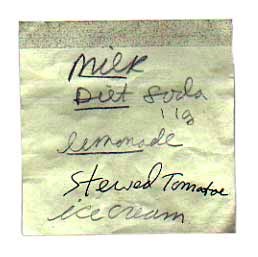 Milk
Diet soda
lemonade
Stewed Tomatoe
ice cream